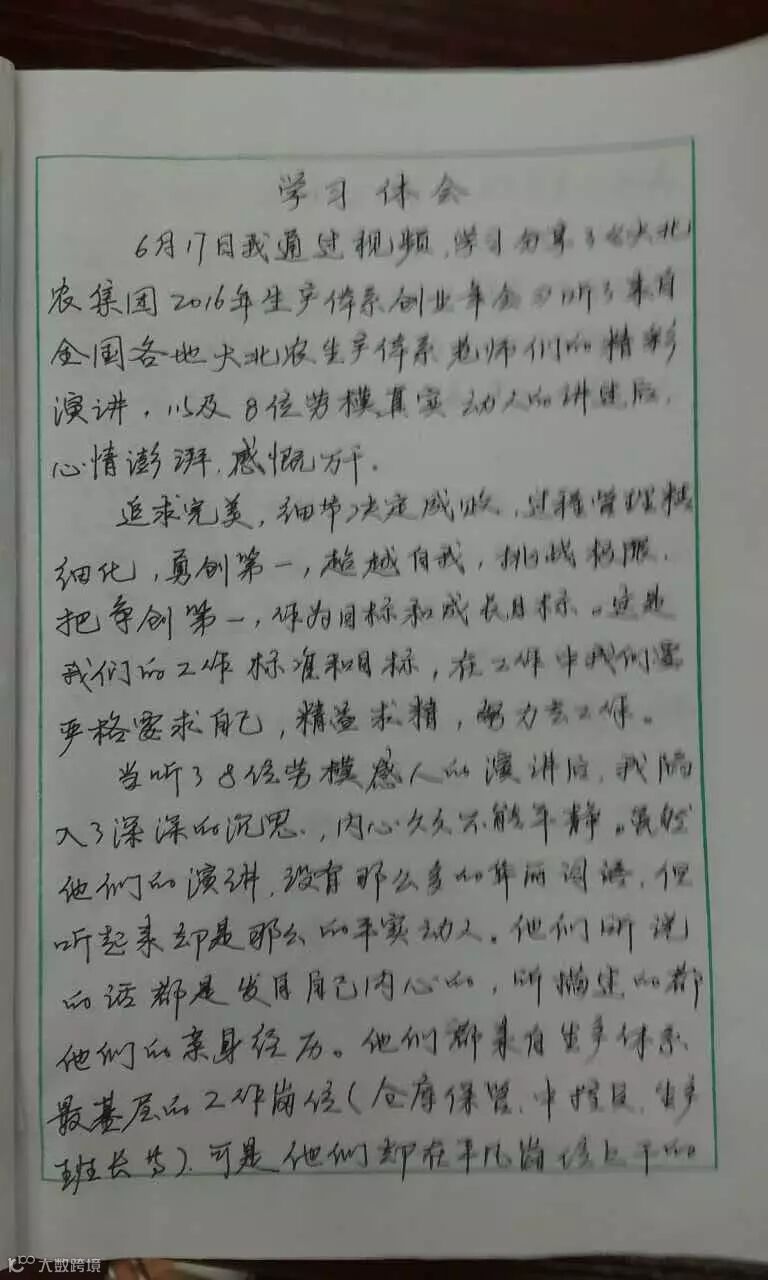 学习体会
6月17日我通过视频,学习分享了《大北
农集团2016年生产体系创业年会》听了来自
全国各地大北农生产体系老师们的精彩
演讲,以及8位劳模真实动人的讲述后,
心情澎湃,感慨万千.
追求完美,细节决定成败,过程管理精
细化,勇创第一,超越自我,挑战极限,
把争创第一,作为目标和成长目标。这是
我们的工作标准和目标,在工作中我们要
严格要求自己,精益求精,努力去工作。
当听了8位劳模感人的演讲后,我陷
入了深深的沉思,内心久久不能平静。虽然
他们的演讲,没有那么多的华丽词语,但
听起来却是那么的平实动人。他们所说
的话都是发自自己内心的,所描述的都
他们的亲身经历。他们都来自生产体系
最基层的工作岗位(仓库保管,中控员,生产
班长等).可是他们却在平凡岗位上干的
大数跨境